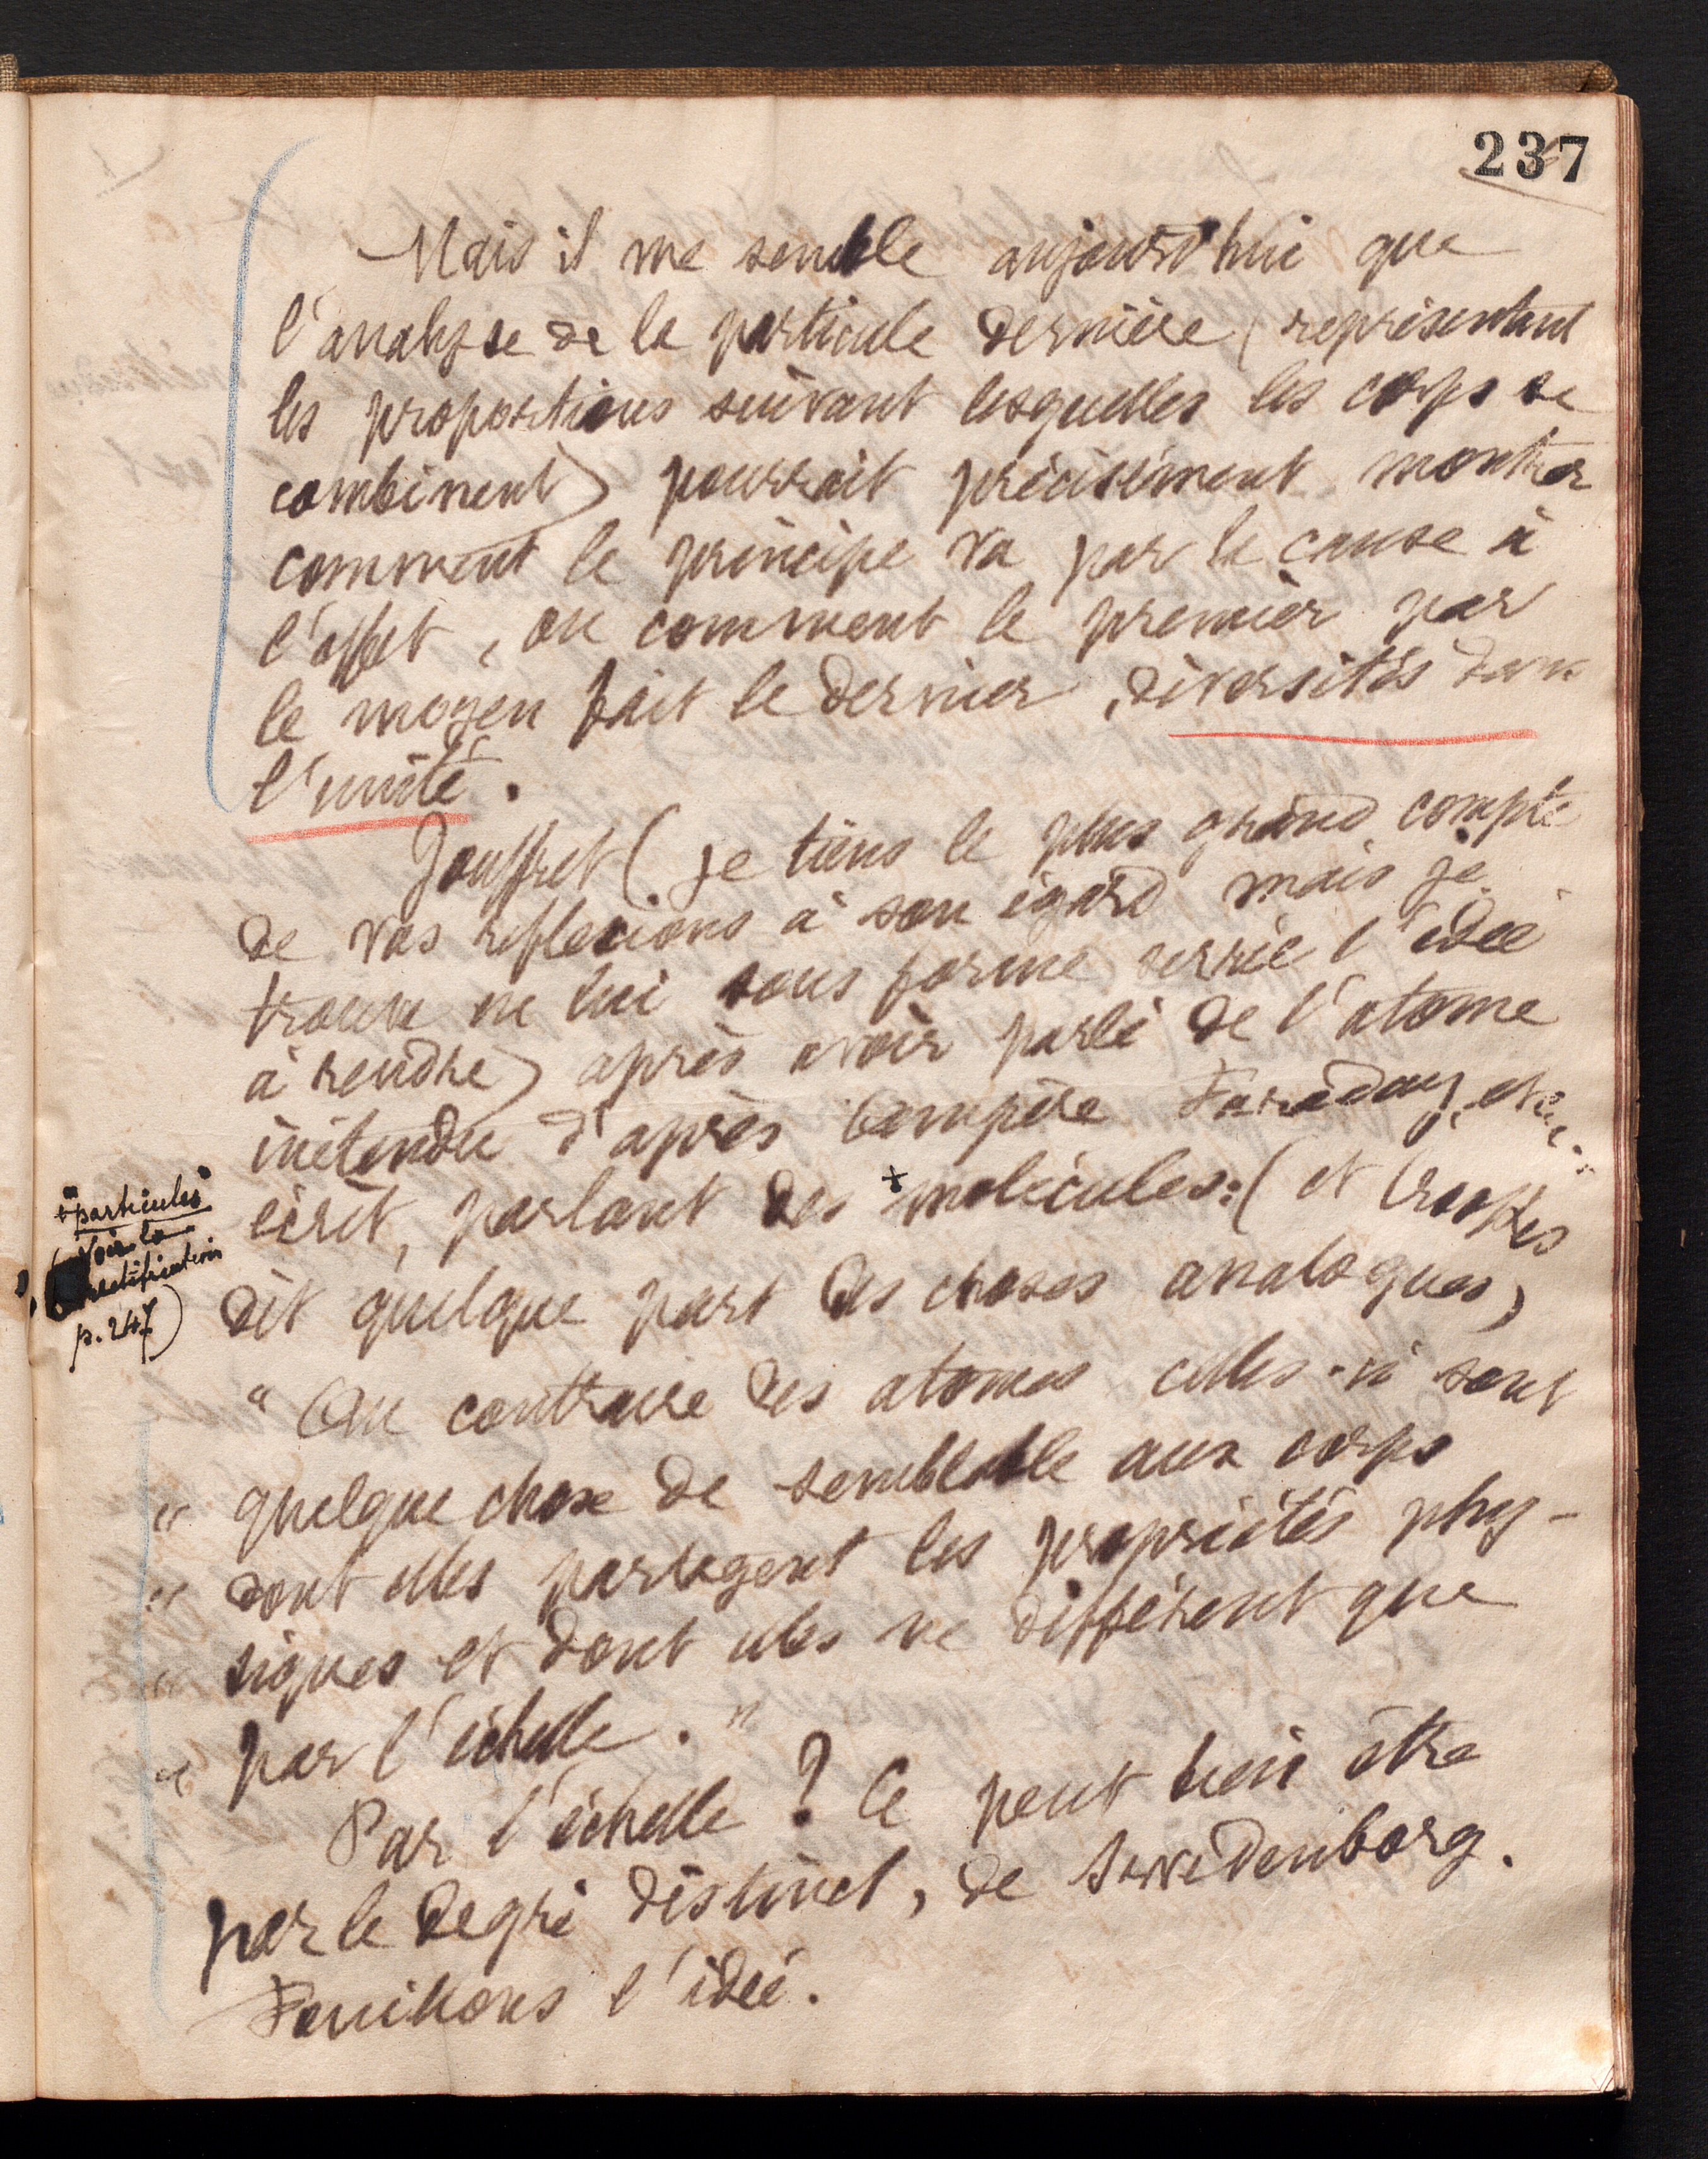 237
Mais il me semble aujourd'hui que
l'analyse de la particule dernière (représentant
les proportions suivant lesquelles les corps se
combinent) pourrait précisément montrer
comment le principe va par la cause à
l'effet, ou comment le premier par
le moyen fait le dernier, diversités dans
l'unité.
Jouffret (je tiens le plus grand compte
de vos réflexions à son égard mais je
trouve en lui sous forme serrée l'idée
à rendre) après avoir parlé de l'atome
inétendu d'après Ampère Faraday, etc..
écrit, parlant des + molécules: (et Crookes
dit quelque part des choses analogues)
+ "particules"
(Voir la
rectification
p. 247)
" Au contraire des atomes celles-ci sont
" quelque chose de semblable aux corps
" dont elles partagent les propriétés phy-
" siques et dont elles ne diffèrent que
" par l'échelle."
Par l'échelle? Ce peut bien être
par le degré distinct, de Swedenborg.
Fouillons l'idée.